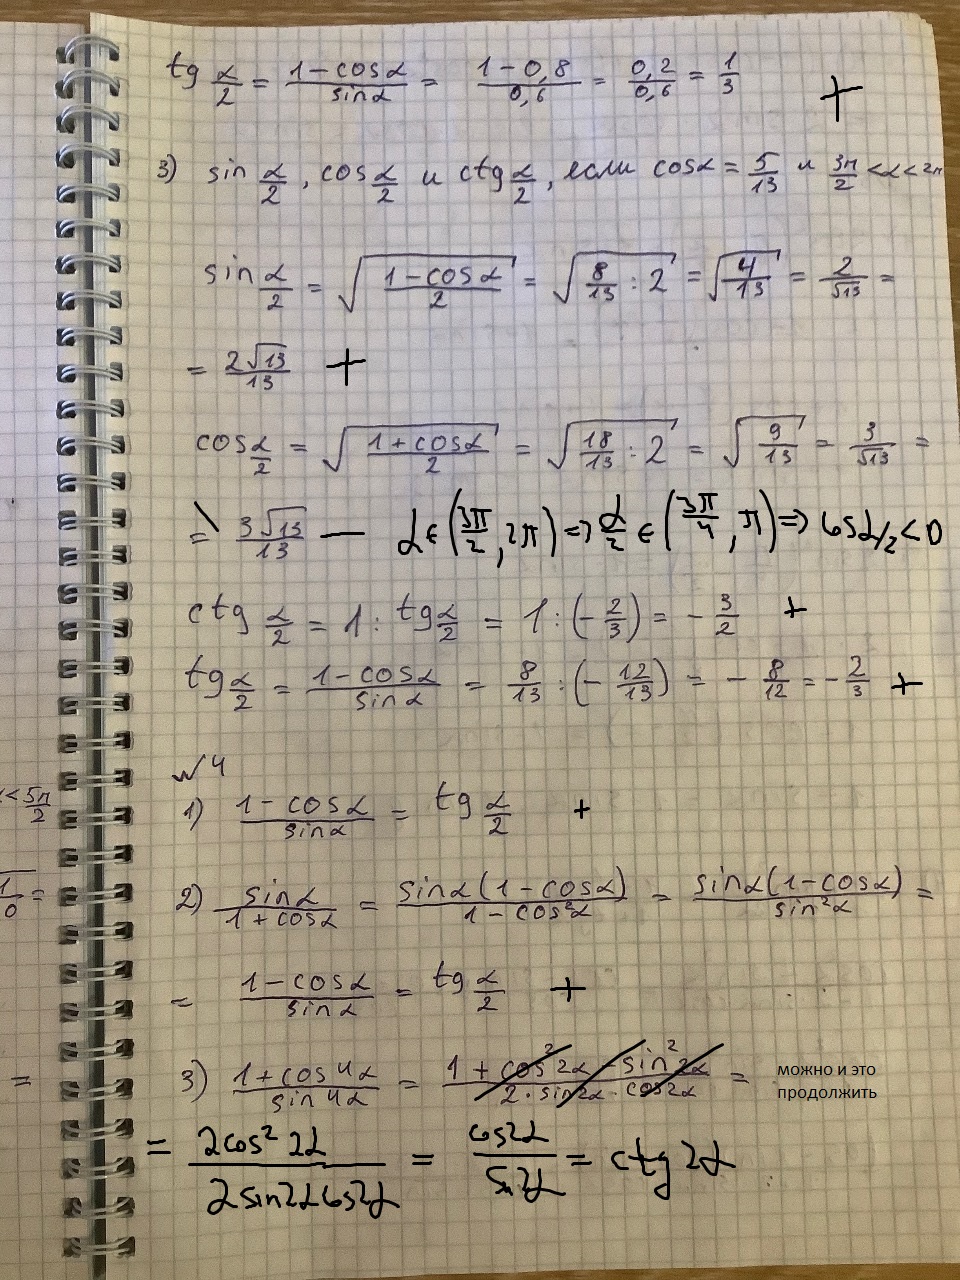 tg α/2 = (1 - cosα)/sinα = (1 - 0,8)/0,6 = 0,2/0,6 = 1/3 +
3) sin α/2, cos α/2 и ctg α/2, если cosα = 5/13 и 3π/2 < α < 2π
sin α/2 = √((1 - cosα)/2) = √(8/13 : 2) = √(4/13) = 2/√13 =
= 2√13/13 +
cos α/2 = √((1 + cosα)/2) = √(18/13 : 2) = √(9/13) = 3/√13 =
= 3√13/13 — α ∈ (3π/2, 2π) => α/2 ∈ (3π/4, π) => cos α/2 < 0
ctg α/2 = 1 : tg α/2 = 1 : (-2/3) = -3/2 +
tg α/2 = (1 - cosα)/sinα = 8/13 : (-12/13) = -8/12 = -2/3 +
№4
1) (1 - cosα)/sinα = tg α/2 +
2) sinα/(1 + cosα) = sinα(1 - cosα)/(1 - cos²α) = sinα(1 - cosα)/sin²α =
= (1 - cosα)/sinα = tg α/2 +
3) (1 + cos4α)/sin4α = (1 + cos²2α - sin²2α)/(2·sin2α·cos2α) =
можно и это
продолжить
= 2cos²2α/(2sin2αcos2α) = cos2α/sin2α = ctg2α
< 5π/2
=
=